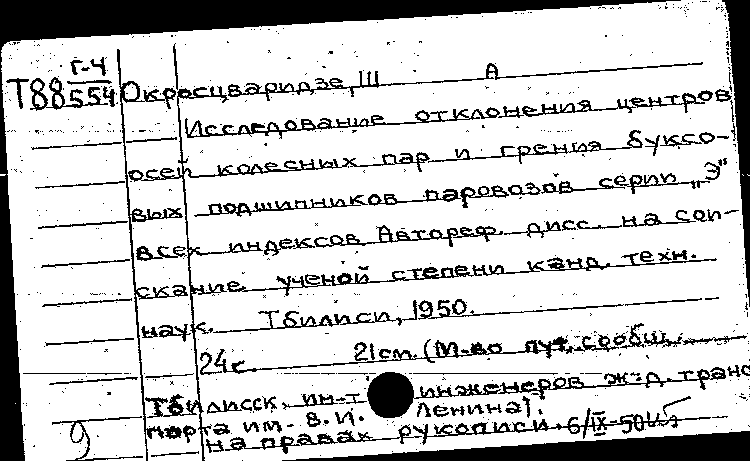 Г-4
Т88554 Окросцваридзе, Ш А
Исследование отклонения центров
осей колесных пар и грения буксо-
вых подшипников паровозов серии „Э"
всех индексов Автореф. дисс. на сои-
скание ученой степени канд. техн.
наук. Тбилиси, 1950.
24с. 21см. (М-во пут. сообщ.
Тбилисск. ин-т инженеров ж-д. транс
порта им. В.И. Ленина).
9 на правах рукописи. 6/IX-50